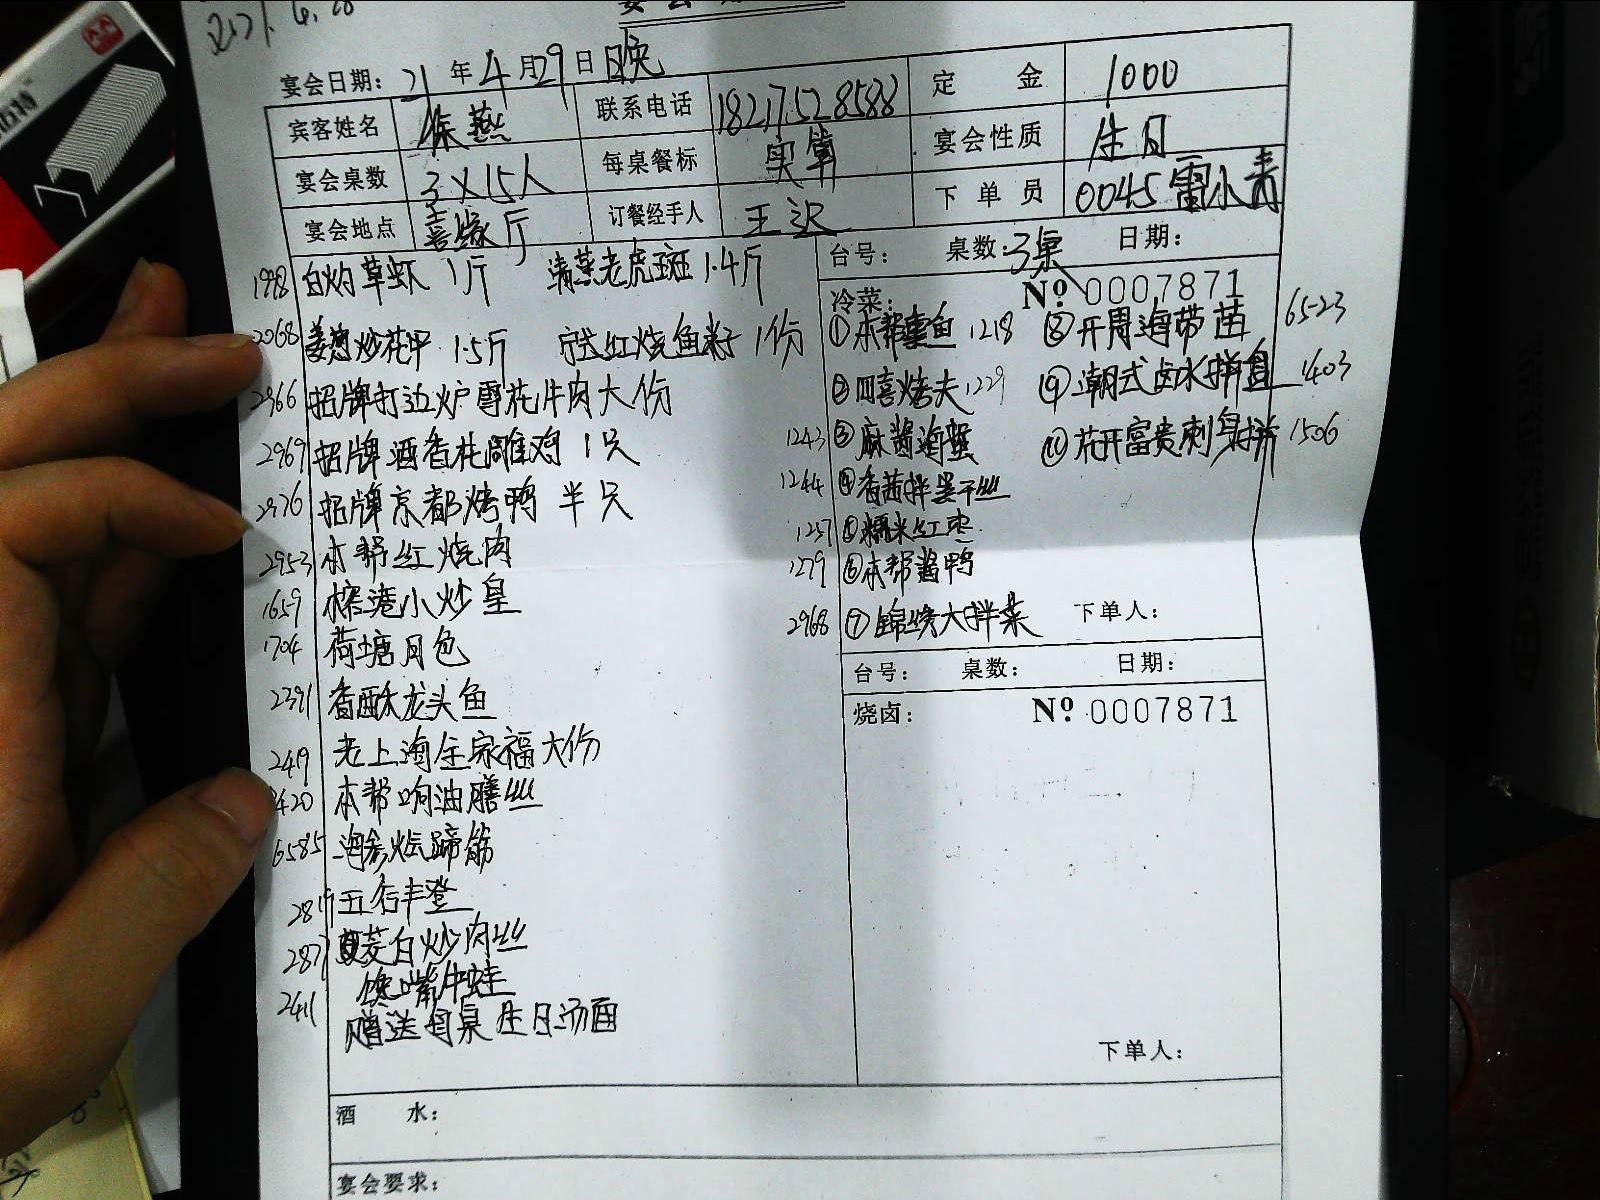 宴会日期: 21 年 4 月 29 日 晚
宾客姓名 徐燕 联系电话 18217528588 定 金 1000
宴会桌数 3X15人 每桌餐标 实算 宴会性质 生日
宴会地点 喜缘厅 订餐经手人 王 下 单 员 0045 雷小青
台号: 桌数:3桌 日期:
1998 白灼草虾 1斤 清蒸老虎斑 1.4斤
2068 姜葱炒花甲 1.5斤 红烧鱼 1份
2966 招牌打边炉雪花牛肉大份
2969 招牌酒香花雕鸡 1只
2976 招牌京都烤鸭 半只
2953 本帮红烧肉
1659 小炒皇
1704 荷塘月色
2391 香酥龙头鱼
2419 老上海全家福大份
2420 本帮响油膳丝
6585 海参烩蹄筋
五谷丰登
茭白炒肉丝
2411 馋嘴牛蛙
赠送每桌生日汤面
冷菜: Nº 0007871
①本帮熏鱼 1218 ⑧开胃海带苗 6523
②四喜烤夫 1229 ⑨潮式卤水拼盘 1403
1243 ③麻酱海蜇 ⑩花开富贵刺身拼 1506
1244 ④香茜拌豆干丝
1257 ⑤糯米红枣
1279 ⑥本帮酱鸭
2968 ⑦锦绣大拌菜 下单人:
台号: 桌数: 日期:
烧卤: Nº 0007871
下单人:
酒 水:
宴会要求: